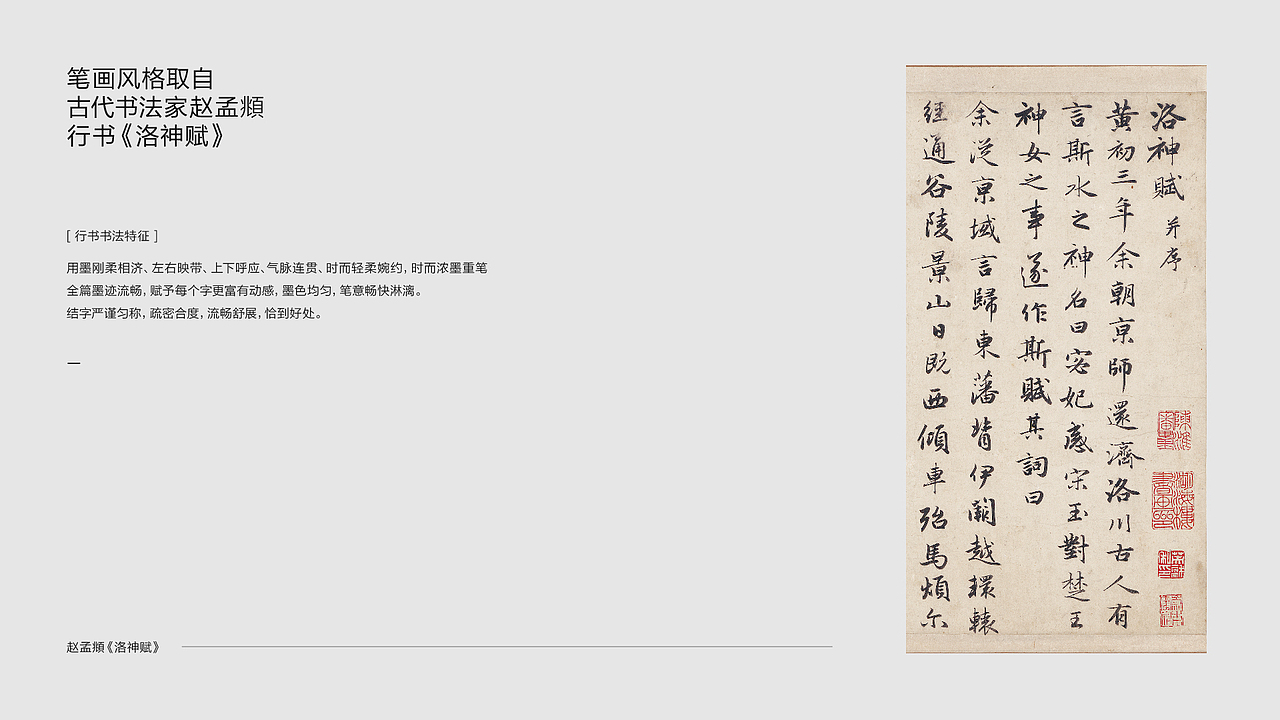 笔画风格取自
古代书法家赵孟頫
行书《洛神赋》
[ 行书书法特征 ]
用墨刚柔相济、左右映带、上下呼应、气脉连贯、时而轻柔婉约，时而浓墨重笔
全篇墨迹流畅，赋予每个字更富有动感，墨色均匀，笔意畅快淋漓。
结字严谨匀称，疏密合度，流畅舒展，恰到好处。
—
赵孟頫《洛神赋》
洛神賦并序
黄初三年余朝京師還濟洛川古人有
言斯水之神名曰宓妃感宋玉對楚王
神女之事遂作斯賦其詞曰
余從京域言歸東藩背伊闕越轘轅
經通谷陵景山日既西傾車殆馬煩尔